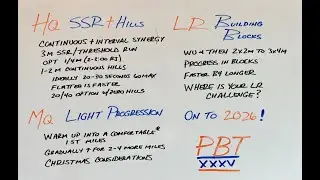 HQ SSR + HILLS
CONTINUOUS + INTERVAL SYNERGY
3M SSR/THRESHOLD RUN
OPT 1/4M (2-2:00 RI)
1-2M CONTINUOUS HILLS
IDEALLY 20-30 SECONDS 60MAX
FLATTER IS FASTER
20/40 OPTION w/ZERO HILLS
MQ LIGHT PROGRESSION
WARM UP INTO A COMFORTABLE*
1ST MILES
GRADUALLY ↑ FOR 2-4 MORE MILES
CHRISTMAS CONSIDERATIONS
LR BUILDING
BLOCKS
WU 4 THEN 2x2M TO 3x4M
PROGRESS IN BLOCKS
FASTER BY LONGER
WHERE IS YOUR LR
CHALLENGE?
ON TO 2026!
PBT
XXXV